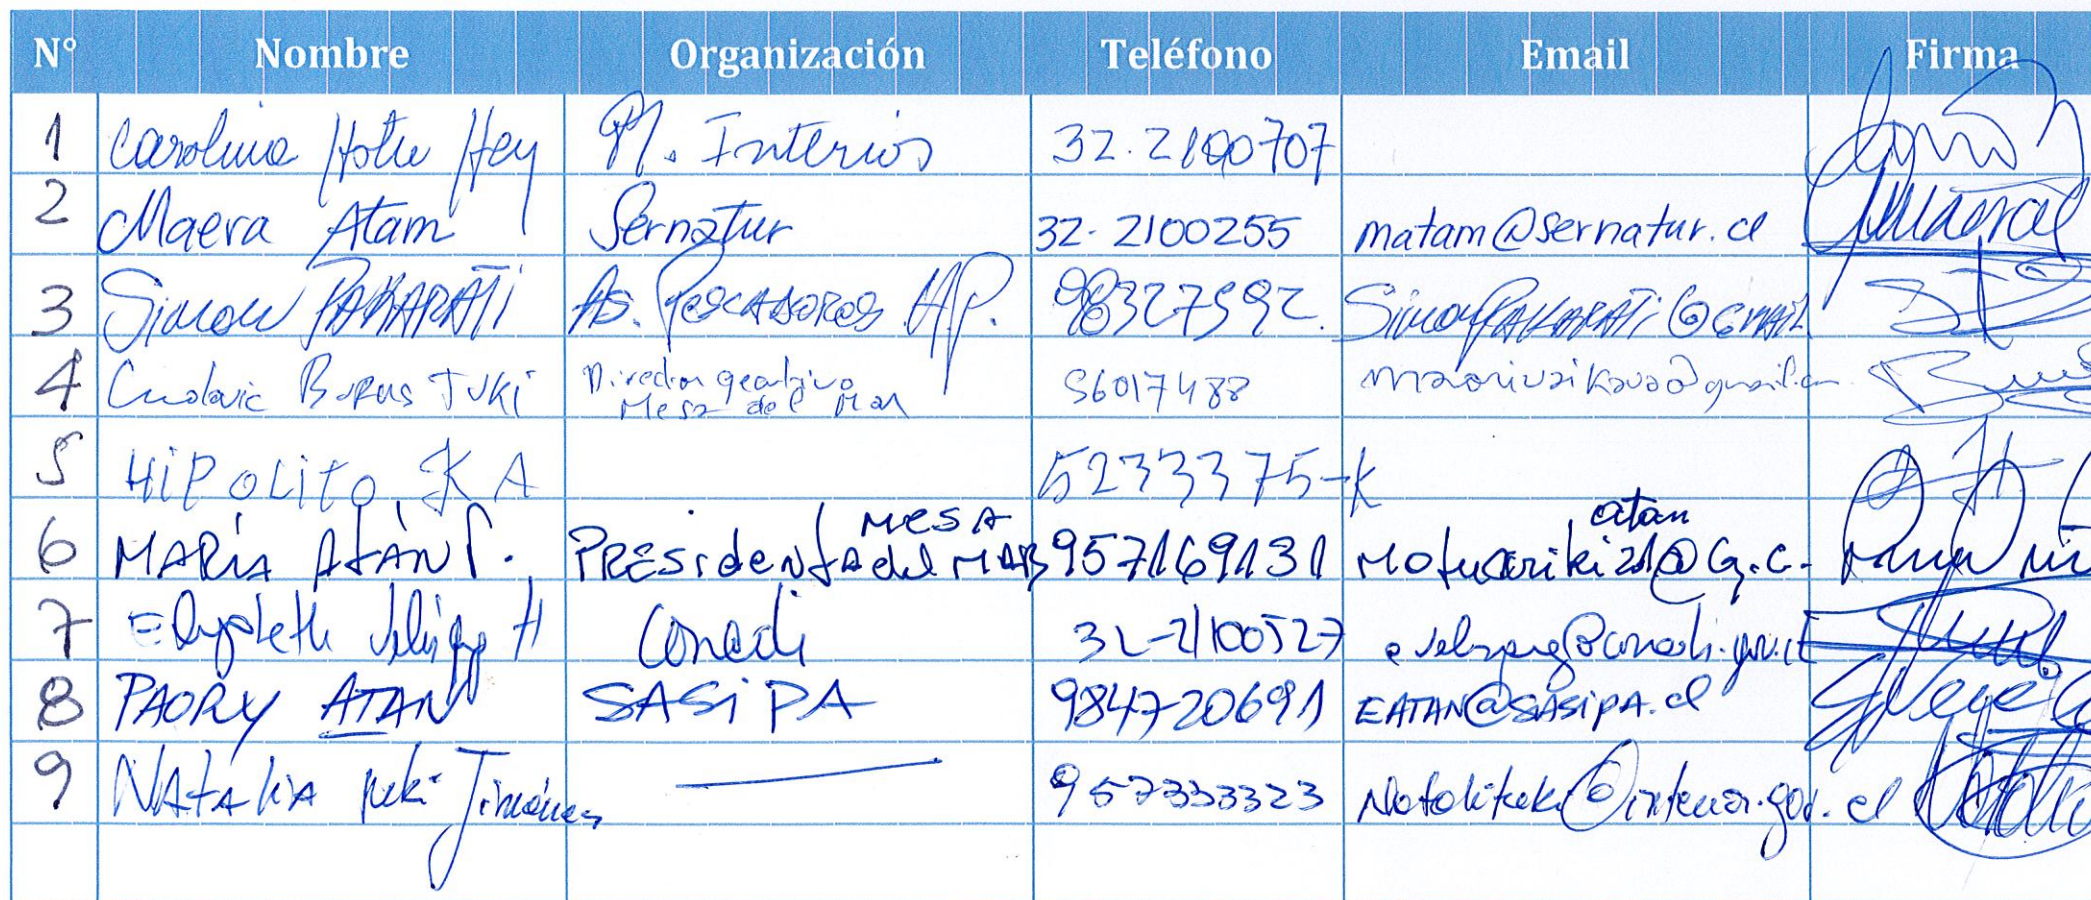 N° Nombre Organización Teléfono Email Firma
1 Carolina Hotu Hey M. Interior 32.2100707
2 Maeva Atam Sernatur 32-2100255 matam@sernatur.cl
3 Simon PAKARATI As. Pescadores H.P. 98327592. SimonPAKARATi@GMAIL
4 Ludovic Burns TUKI Director ejecutivo 56017488
Mesa del Mar
5 HiPoLito. K A 5233375-K
6 MARIA ATÁN P. PRESidentA MESA del MAR 957169131 Motuariki21@G.C. atan
7 Elizabeth H Conadi 32-2100527
8 PAORY ATAN SASiPA 9847-20691 EATAN@SASiPA.cl
9 NAtAliA tuki Jiménez — 957333323 Natalituki@interior.gov.cl